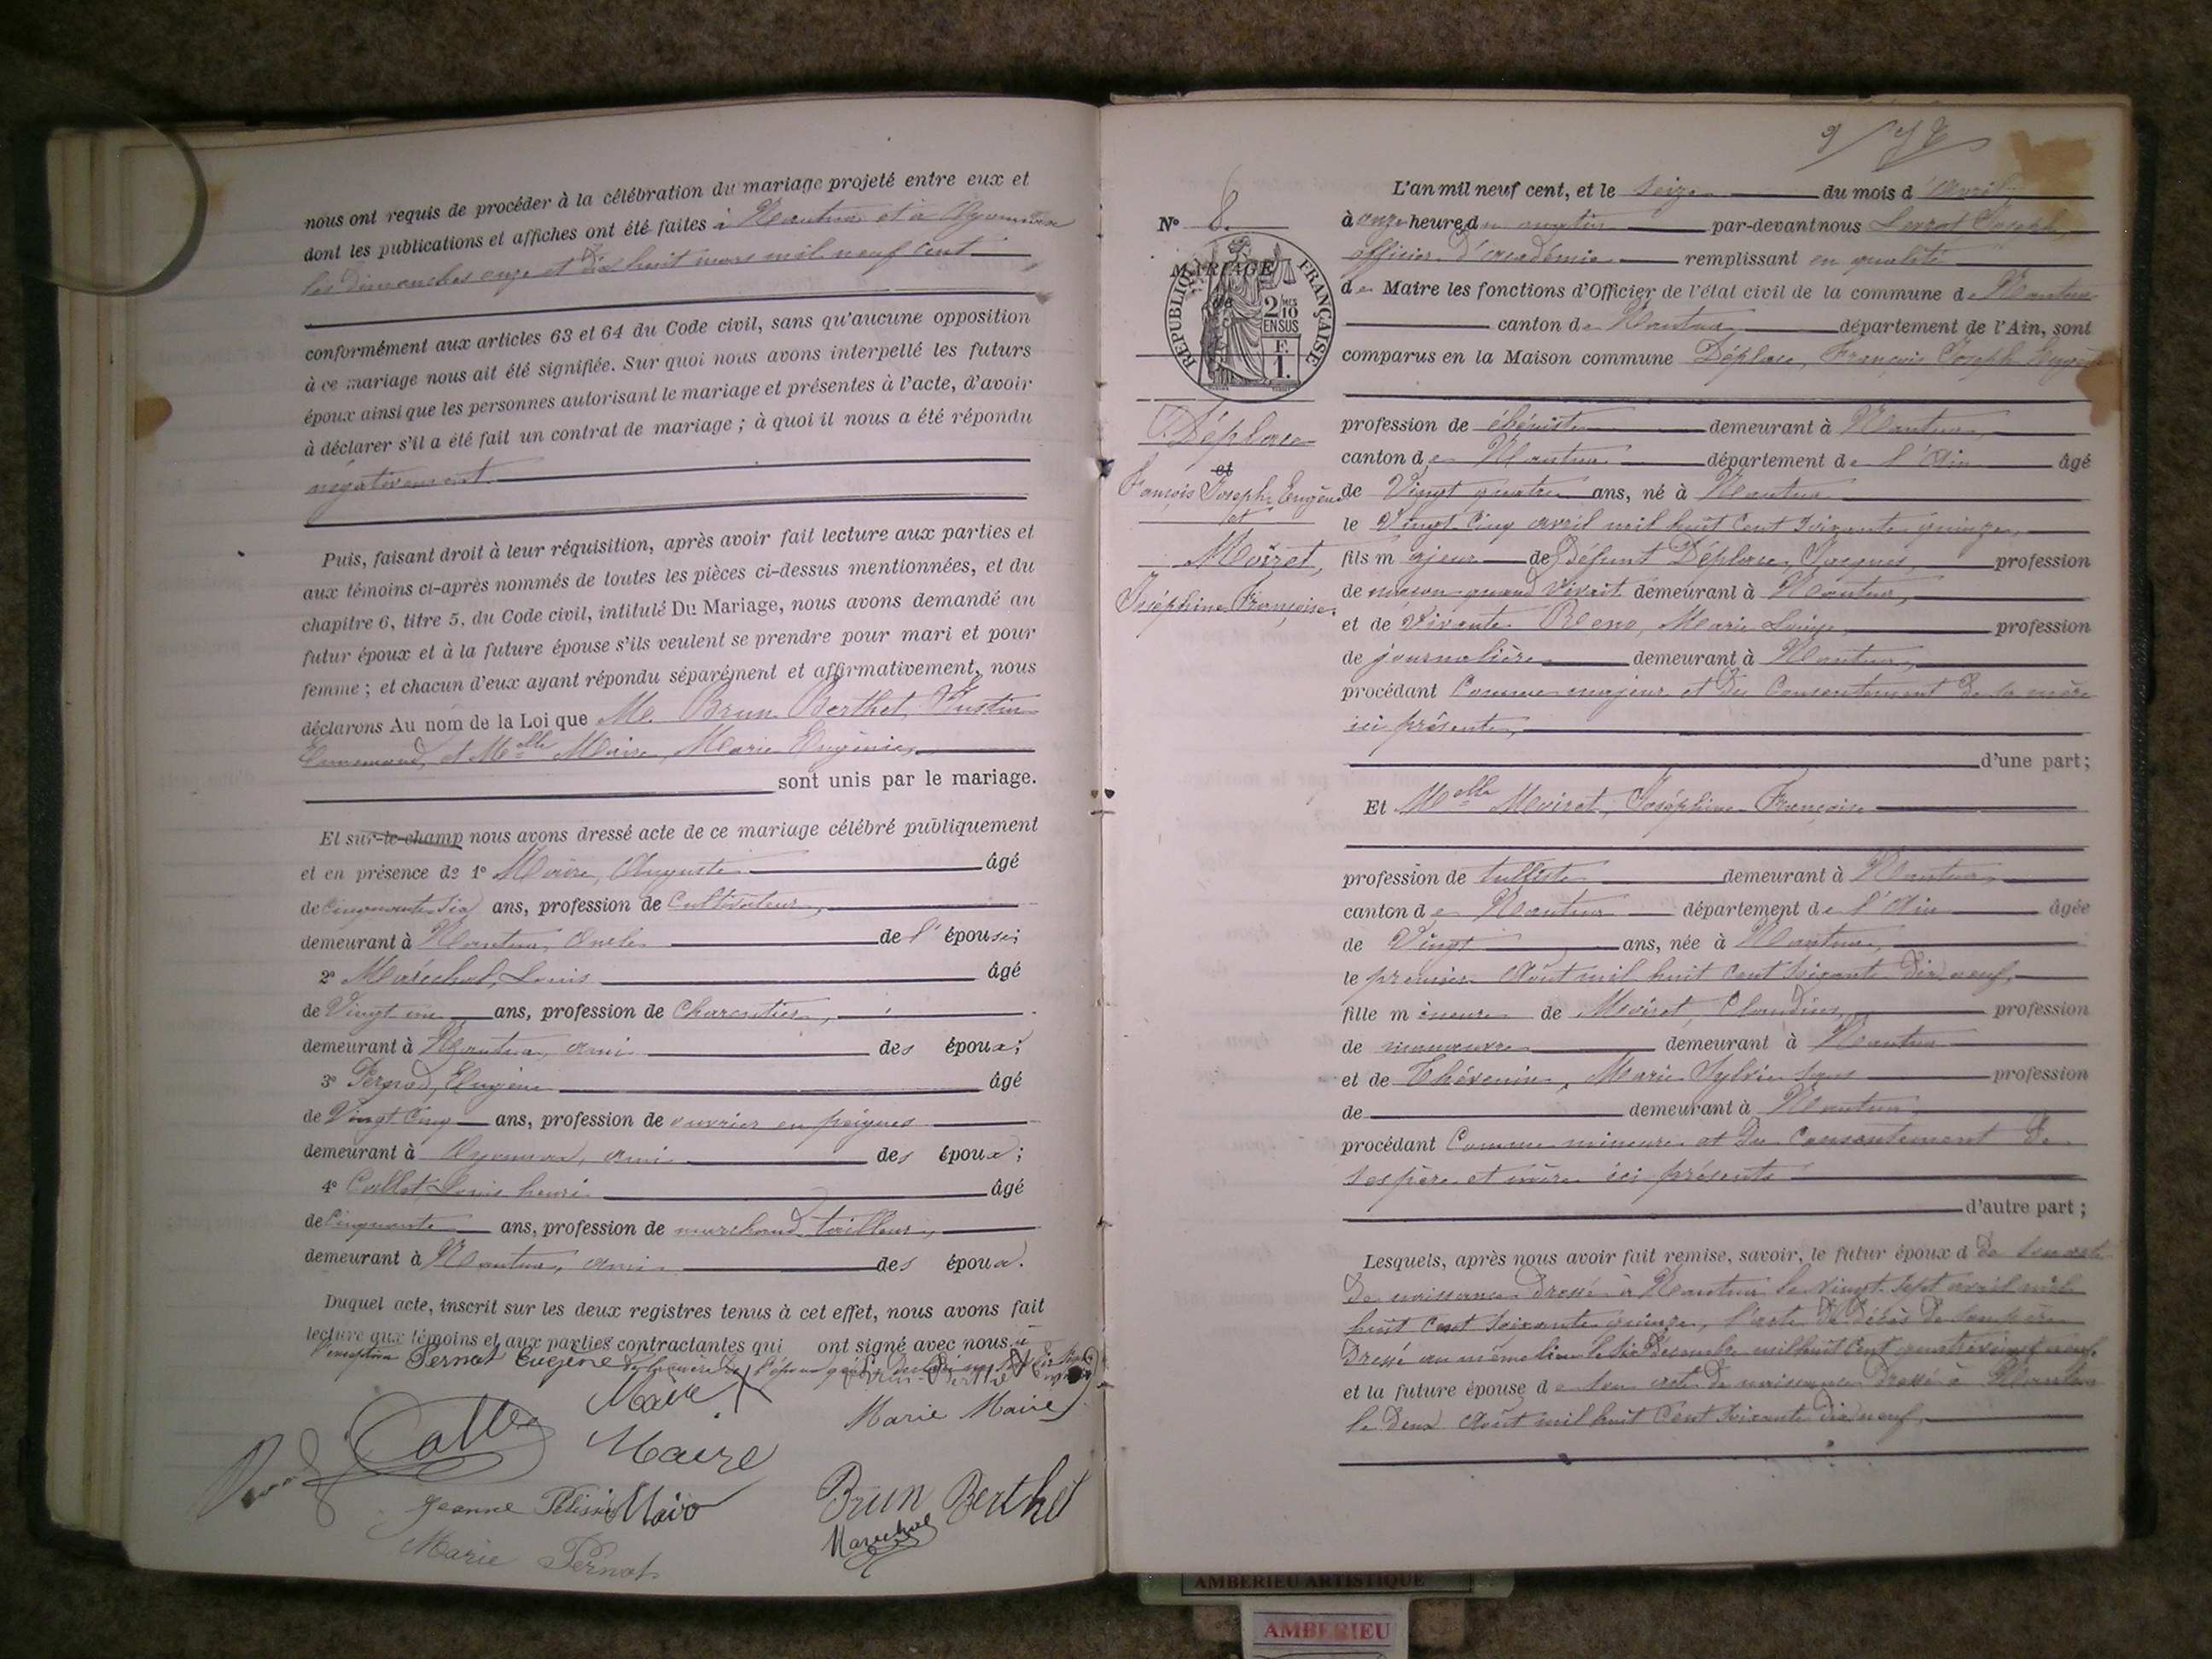 nous ont requis de procéder à la célébration du mariage projeté entre eux et
dont les publications et affiches ont été faites à Nantua et à Oyonnax
les dimanches onze et dix huit mars mil neuf cent
conformément aux articles 63 et 64 du Code civil, sans qu'aucune opposition
à ce mariage nous ait été signifiée. Sur quoi nous avons interpellé les futurs
époux ainsi que les personnes autorisant le mariage et présentes à l'acte, d'avoir
à déclarer s'il a été fait un contrat de mariage ; à quoi il nous a été répondu
négativement.
Puis, faisant droit à leur réquisition, après avoir fait lecture aux parties et
aux témoins ci-après nommés de toutes les pièces ci-dessus mentionnées, et du
chapitre 6, titre 5, du Code civil, intitulé Du Mariage, nous avons demandé au
futur époux et à la future épouse s'ils veulent se prendre pour mari et pour
femme ; et chacun d'eux ayant répondu séparément et affirmativement, nous
déclarons Au nom de la Loi que Mr Brun Berthet, Justin
et Melle Maire, Marie Eugénie,
sont unis par le mariage.
Et sur-le-champ nous avons dressé acte de ce mariage célébré publiquement
et en présence de 1° Maire, Auguste âgé
de cinquante six ans, profession de Cultivateur,
demeurant à Nantua, oncle de l'épouse;
2° Maréchal, Louis âgé
de Vingt un ans, profession de Charcutier,
demeurant à Nantua, ami des époux;
3° Pernod, Eugène âgé
de Vingt cinq ans, profession de ouvrier en peignes
demeurant à Oyonnax, ami des époux;
4° Collet Louis henri âgé
de Cinquante ans, profession de marchand tailleur,
demeurant à Nantua, ami des époux.
Duquel acte, inscrit sur les deux registres tenus à cet effet, nous avons fait
lecture aux témoins et aux parties contractantes qui ont signé avec nous à
l'exception Pernot Eugène
Maire
Marie Maire
Collet
Maire
Brun Berthet
Jeanne
Marechal
Marie Pernot
L'an mil neuf cent, et le seize du mois d'Avril
N° 8.
à onze heures du matin par-devant nous Joseph,
officier d'académie remplissant en qualité
de Maire les fonctions d'Officier de l'état civil de la commune de Nantua
canton de Nantua département de l'Ain, sont
comparus en la Maison commune Déplace, François Joseph Eugène
MARIAGE
RÉPUBLIQUE FRANÇAISE
2/10 EN SUS
F. 1.
Déplace
et
François Joseph Eugène
et
Moiret,
Joséphine Françoise.
profession de ébéniste demeurant à Nantua,
canton de Nantua département de l'Ain âgé
de Vingt quatre ans, né à Nantua
le Vingt Cinq avril mil huit Cent soixante quinze,
fils majeur de Défunt Déplace, Jacques, profession
de maçon quand vivait demeurant à Nantua,
et de Vivante Marie Louise, profession
de journalière demeurant à Nantua,
procédant Comme majeur et du Consentement de sa mère
ici présente,
d'une part;
Et Melle Moiret, Joséphine Françoise
profession de tulliste demeurant à Nantua,
canton de Nantua département de l'Ain âgée
de Vingt ans, née à Nantua,
le premier Août mil huit cent soixante dix neuf,
fille mineure de Moiret, Claudius, profession
de manoeuvre demeurant à Nantua
et de Thévenin, Marie Sylvie sans profession
de demeurant à Nantua,
procédant Comme mineure et du Consentement de
ses père et mère ici présents
d'autre part ;
Lesquels, après nous avoir fait remise, savoir, le futur époux d de son acte
de naissance dressé à Nantua le vingt sept avril mil
huit cent soixante quinze, l'acte de décès de son père
dressé au même lieu le six décembre mil huit cent quatre vingt neuf
et la future épouse de son acte de naissance dressé à Nantua
le deux Août mil huit Cent soixante dix neuf,
AMBERIEU ARTISTIQUE
AMBERIEU